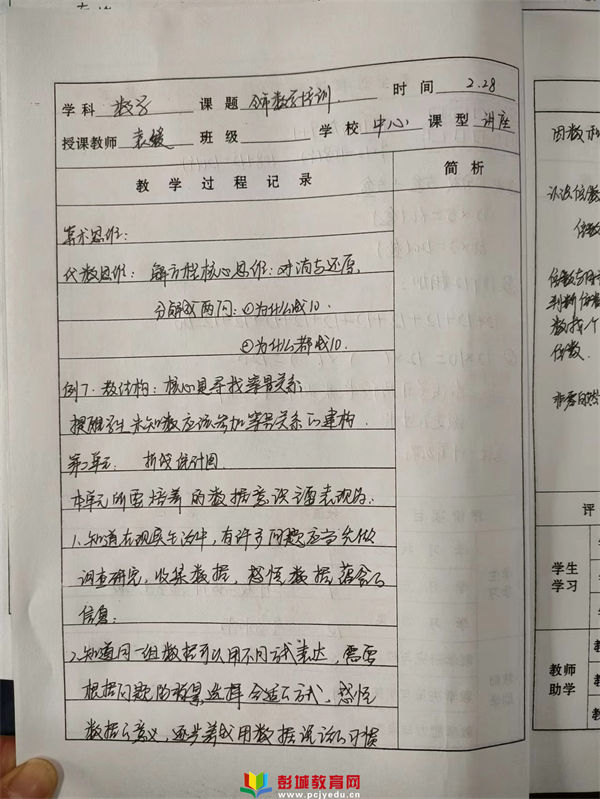 学科 数学 课题 全市数学培训. 时间 2.28
授课教师 袁媛 班级 学校 中心 课型 讲座
教学过程记录 简析
算术思维:
代数思维: 解方程核心思维: 对消与还原.
分解成两问: ①为什么减10.
②为什么都减10.
例7. 数结构: 核心是寻找等量关系
提醒学生未知数应该参加等量关系的建构.
第2单元. 折线统计图.
本单元所要培养的数据意识 表现为:
1.知道在现实生活中, 有许多问题应当先做
调查研究, 收集数据, 感悟数据蕴含的
信息;
2.知道同一组数据可以用不同方式表达, 需要
根据问题的背景选择合适的方式, 感悟
数据的意义, 逐步养成用数据说话的习惯
因数和
认识倍数
倍数
倍数与因
判断倍数
数找个
倍数.
评
学生
学习
教师
助学
教
教
教
彭城教育网
www.pcjyedu.cn